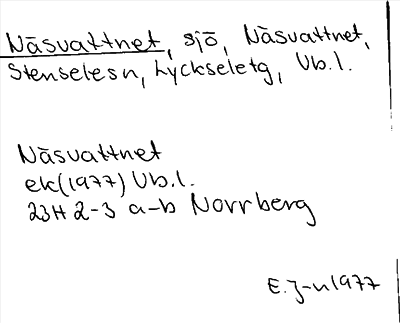 Näsvattnet, sjö, Näsvattnet,
Stenselesn, Lyckseletg, Vb.l.
Näsvattnet
ek(1977) Vb.l.
23H 2-3 a-b Norrberg
E.J-n 1977